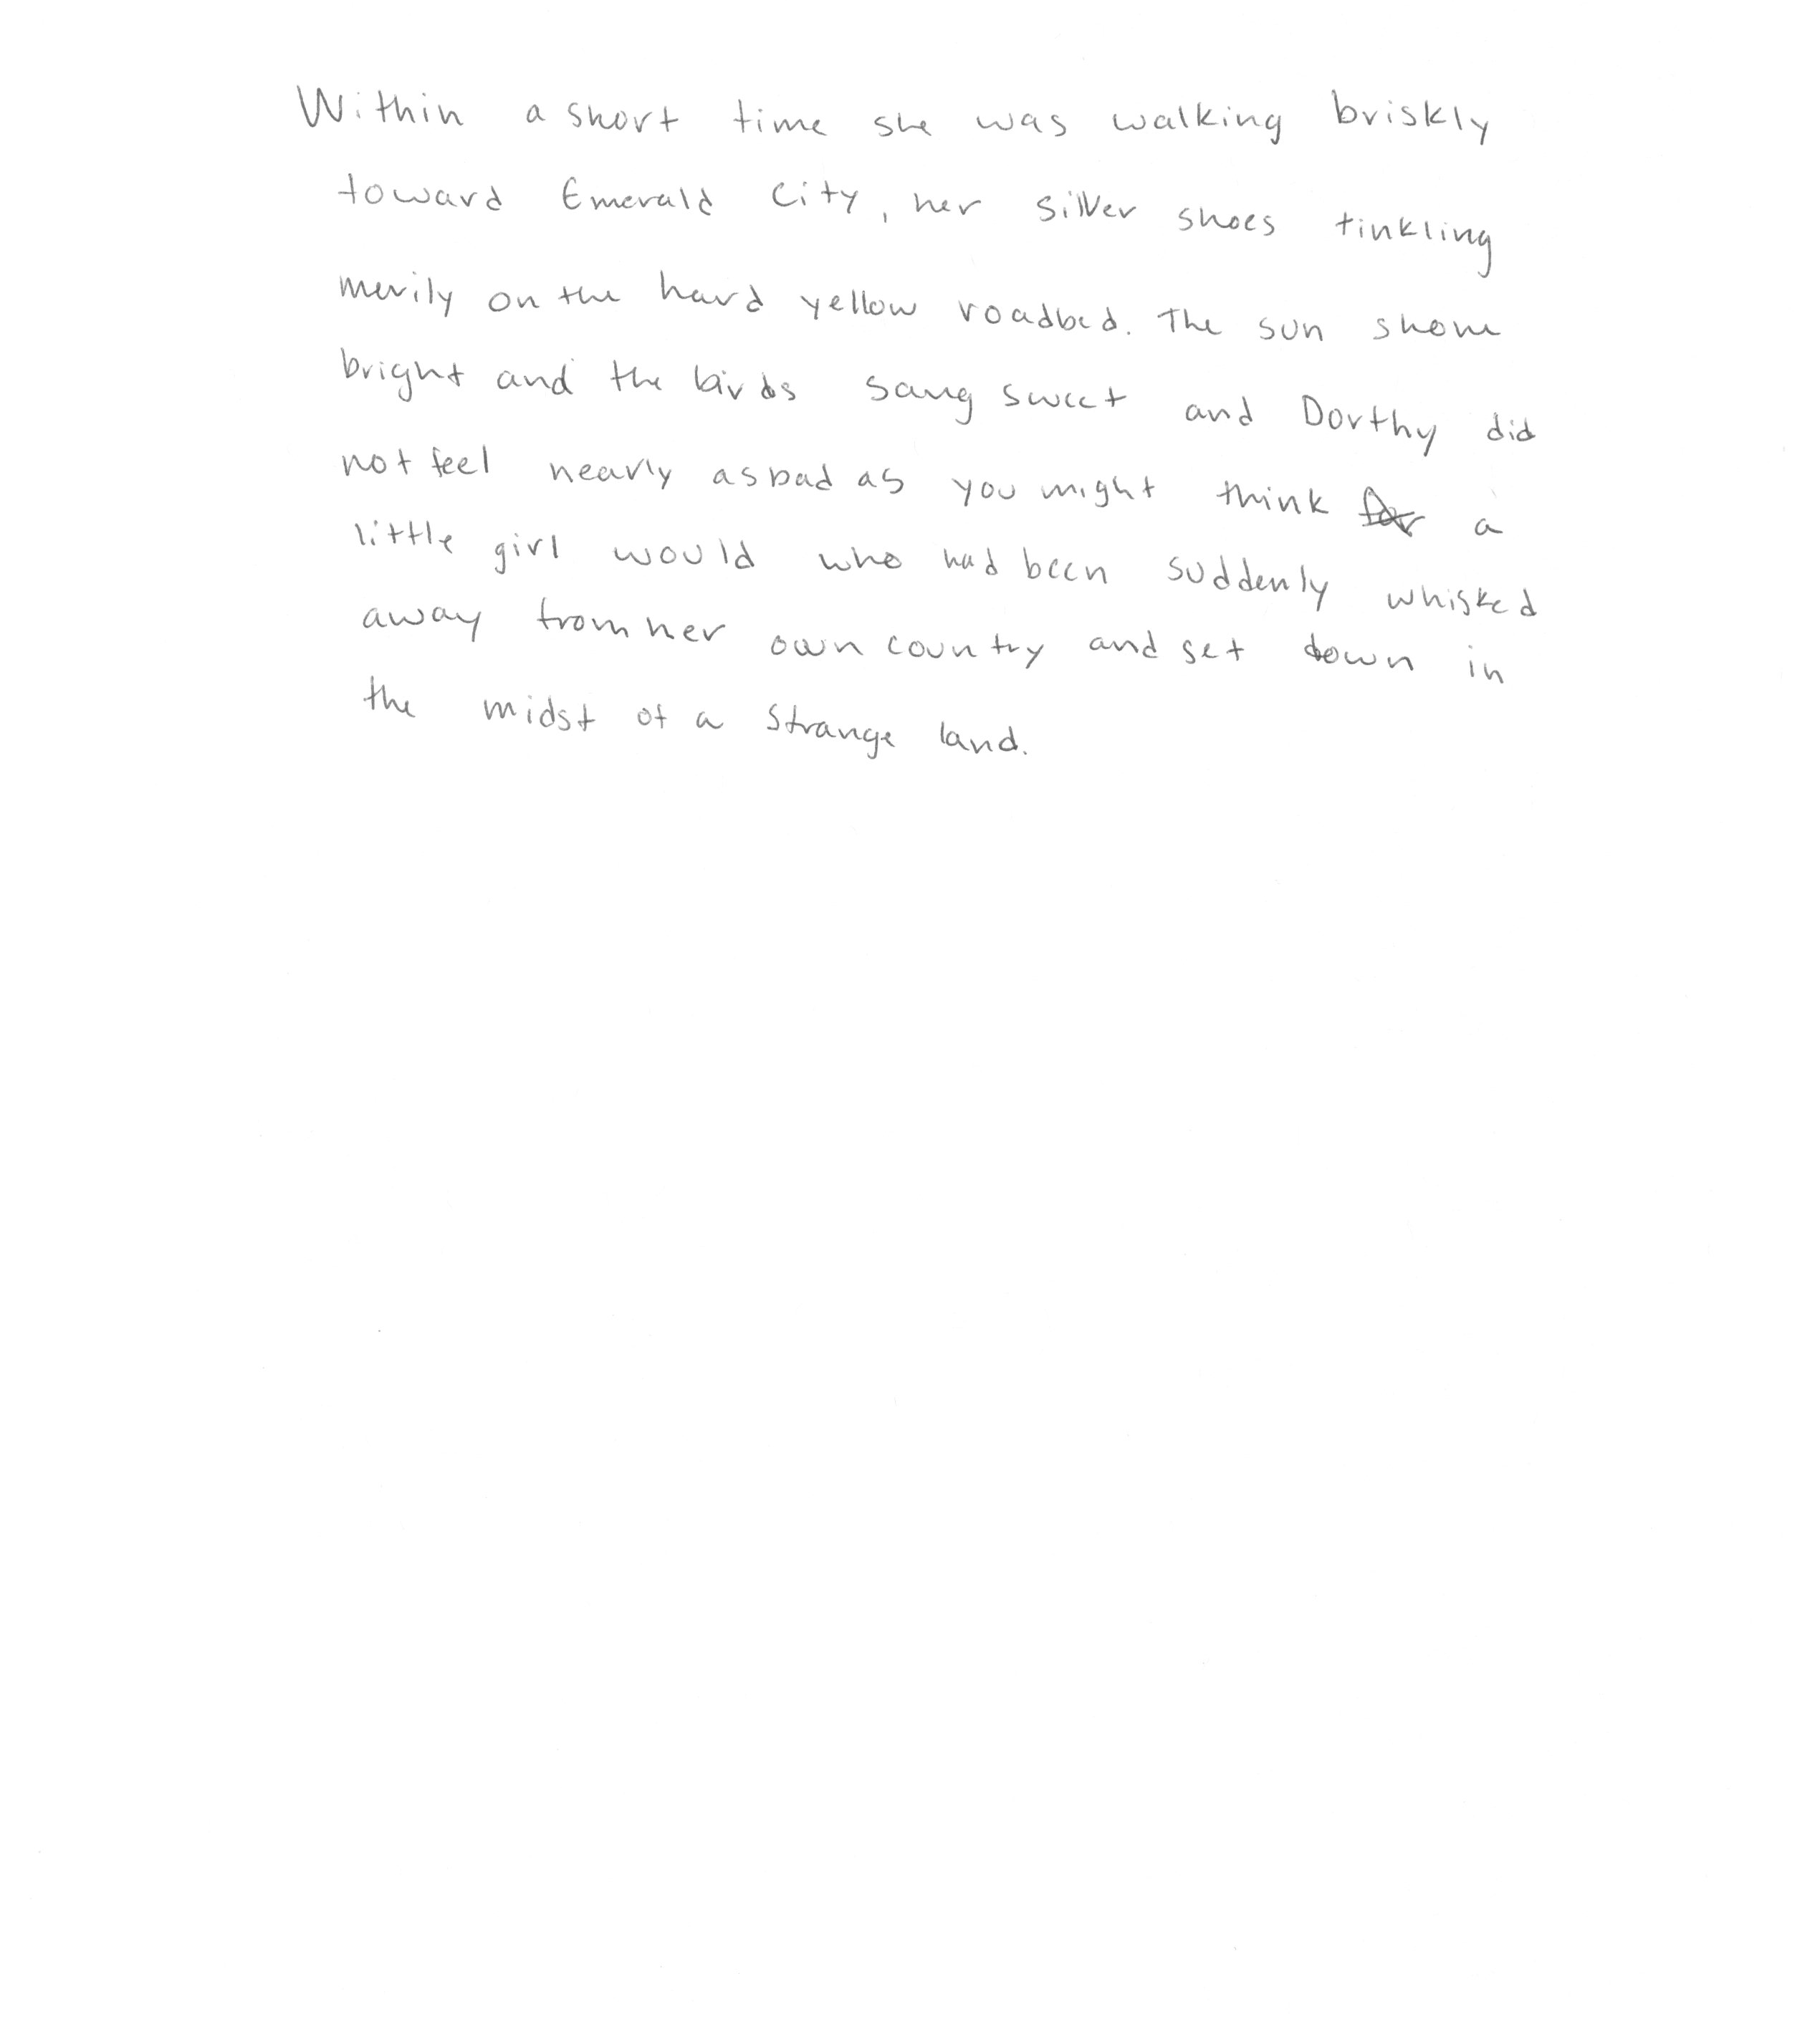 Within a short time she was walking briskly
toward Emerald City, her silver shoes tinkling
merily on the hard yellow roadbed. The sun shone
bright and the birds sang sweet and Dorthy did
not feel nearly as bad as you might think a
little girl would who had been suddenly whisked
away from her own country and set down in
the midst of a strange land.